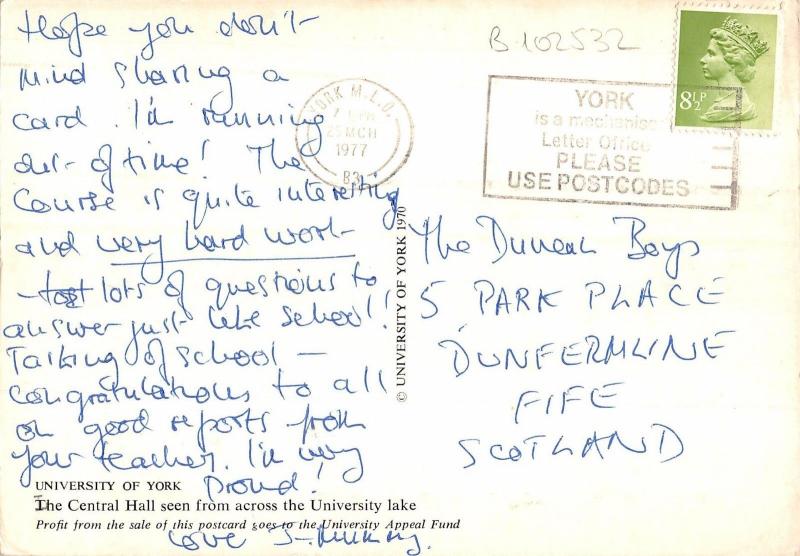 Hope you don't
mind sharing a
card. I'm running
out of time! The
course is quite interesting
and very hard work
lots of questions to
answer just like school!
Talking of school —
congratulations to all
on good reports from
your teacher. I'm very
proud!
love
B.102532
YORK M.L.O.
25 MCH
1977
83
YORK
is a mechanise
Letter Office
PLEASE
USE POSTCODES
8½P
The Duncan Boys
5 PARK PLACE
DUNFERMLINE
FIFE
SCOTLAND
© UNIVERSITY OF YORK 1970
UNIVERSITY OF YORK
The Central Hall seen from across the University lake
Profit from the sale of this postcard goes to the University Appeal Fund